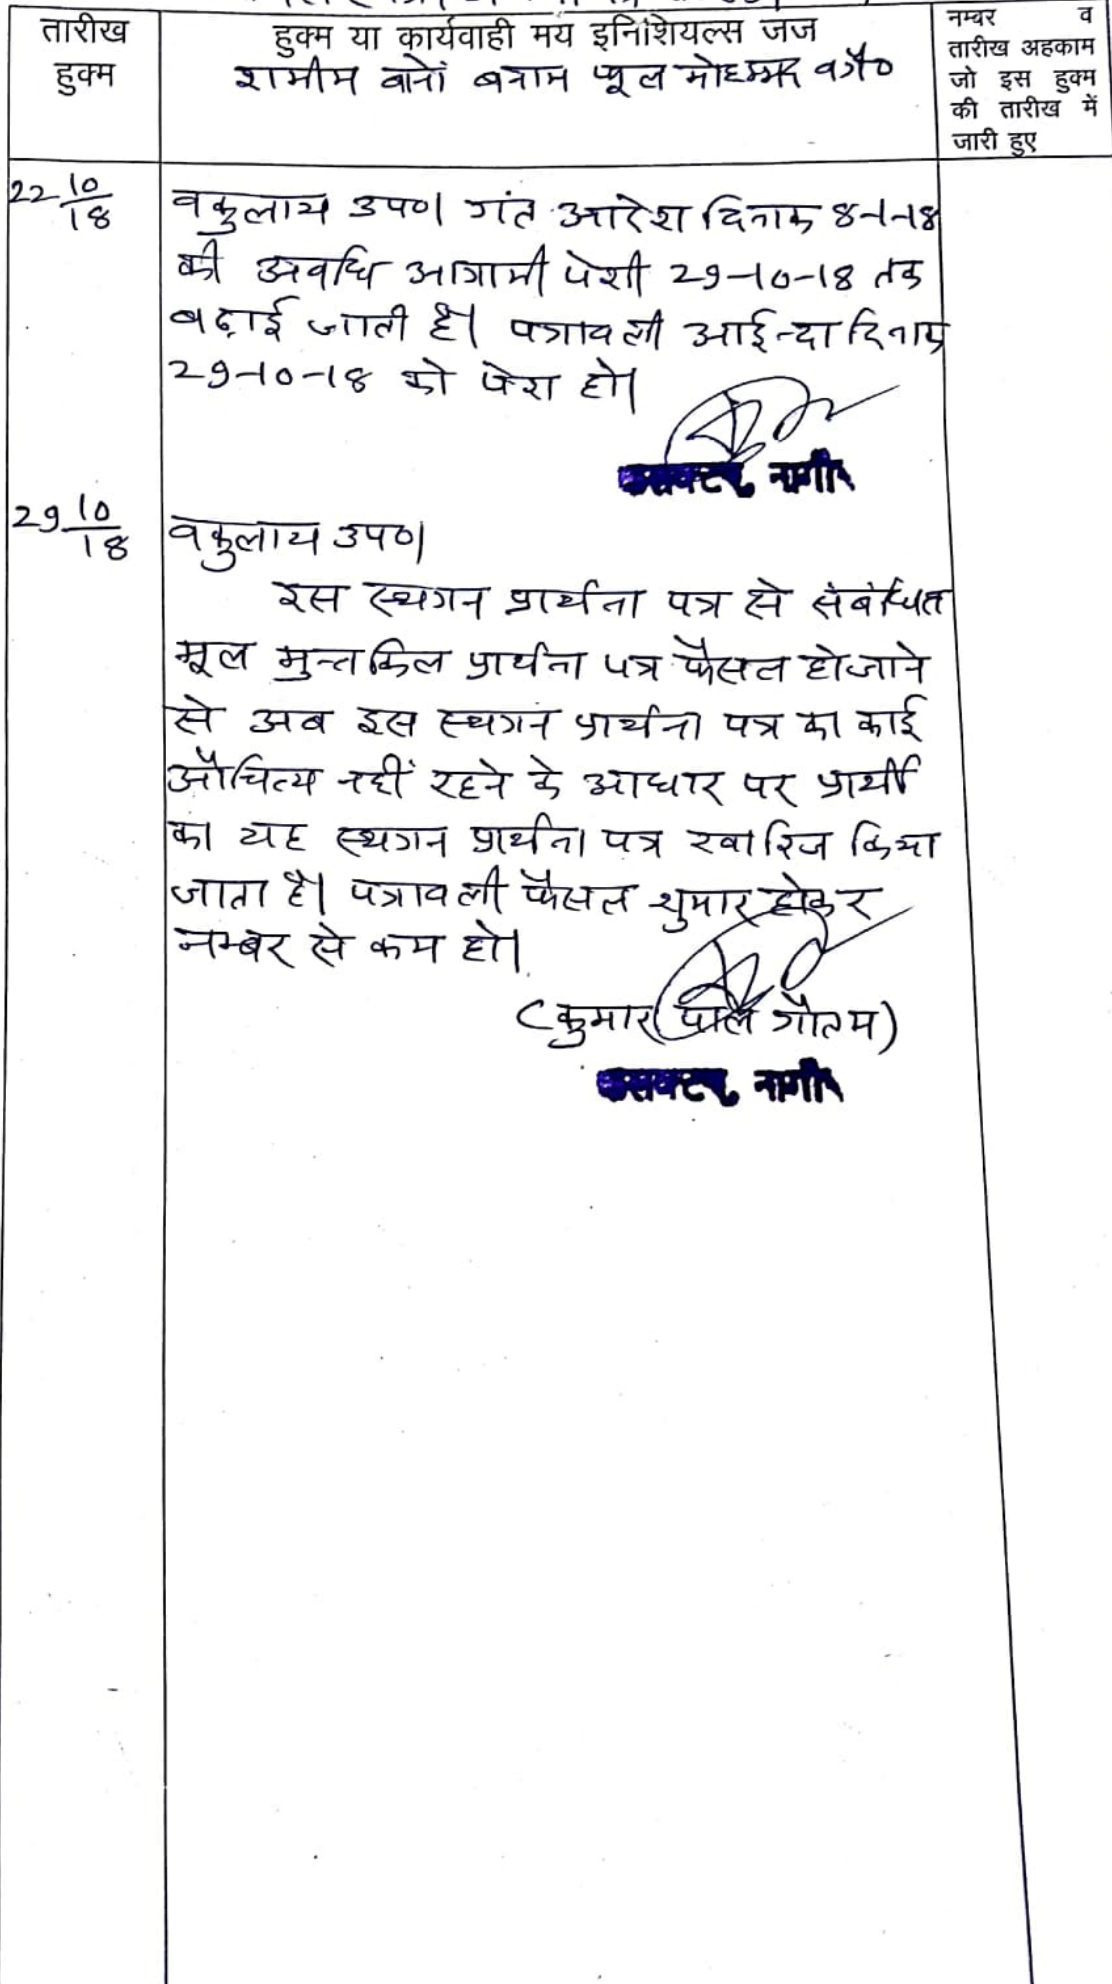 तारीख
हुक्म
हुक्म या कार्यवाही मय इनिशियल्स जज
शामीम बानों बनाम फूल मोहम्मद वगै०
नम्बर व
तारीख अहकाम
जो इस हुक्म
की तारीख में
जारी हुए
22 10/18
वकुलाय उप०। गंत आदेश दिनांक 8-1-18
की अवधि आगामी पेशी 29-10-18 तक
बढ़ाई जाती है। पत्रावली आईन्दा दिनांक
29-10-18 को पेश हो।
कलक्टर, नागौर
29 10/18
वकुलाय उप०।
इस स्थगन प्रार्थना पत्र से संबंधित
मूल मुन्तकिल प्रार्थना पत्र फैसल होजाने
से अब इस स्थगन प्रार्थना पत्र का काई
औचित्य नहीं रहने के आधार पर प्रार्थी
का यह स्थगन प्रार्थना पत्र खारिज किया
जाता है। पत्रावली फैसल शुमार होकर
नम्बर से कम हो।
(कुमार पाल गौतम)
कलक्टर, नागौर